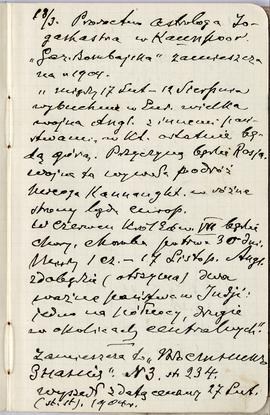 18/3. Proroctwo astrologa Jo-
gashastra w Kaunpoor.
„Gaz. Bombajska” zamieszcza
na 1904.
„między 17 Lut - 12 Sierpnia
wybuchnie w Eur. wielka
wojna Angl. z innemi pań-
stwami, w kt. ostatnie bę-
dą górą. Przyczyną będzie Rosja.
wojna ta wywoła podróż
księcia Kannaught. w różne
strony lądu europ.
w Czerwcu Król Edw. VII będzie
chory, choroba potrwa 30 dni.
Między 1 - 17 Listop. Angl.
zdobędzie (otrzyma) dwa
ważne państwa w Indji:
jedno na północy, drugie
w okolicach centralnych”.
Zamieszcza to „Вѣстникъ
Знанія” N 3. st 234.
wyszedł z datą cenzury 27 Lut.
(st. st). 1904 r.